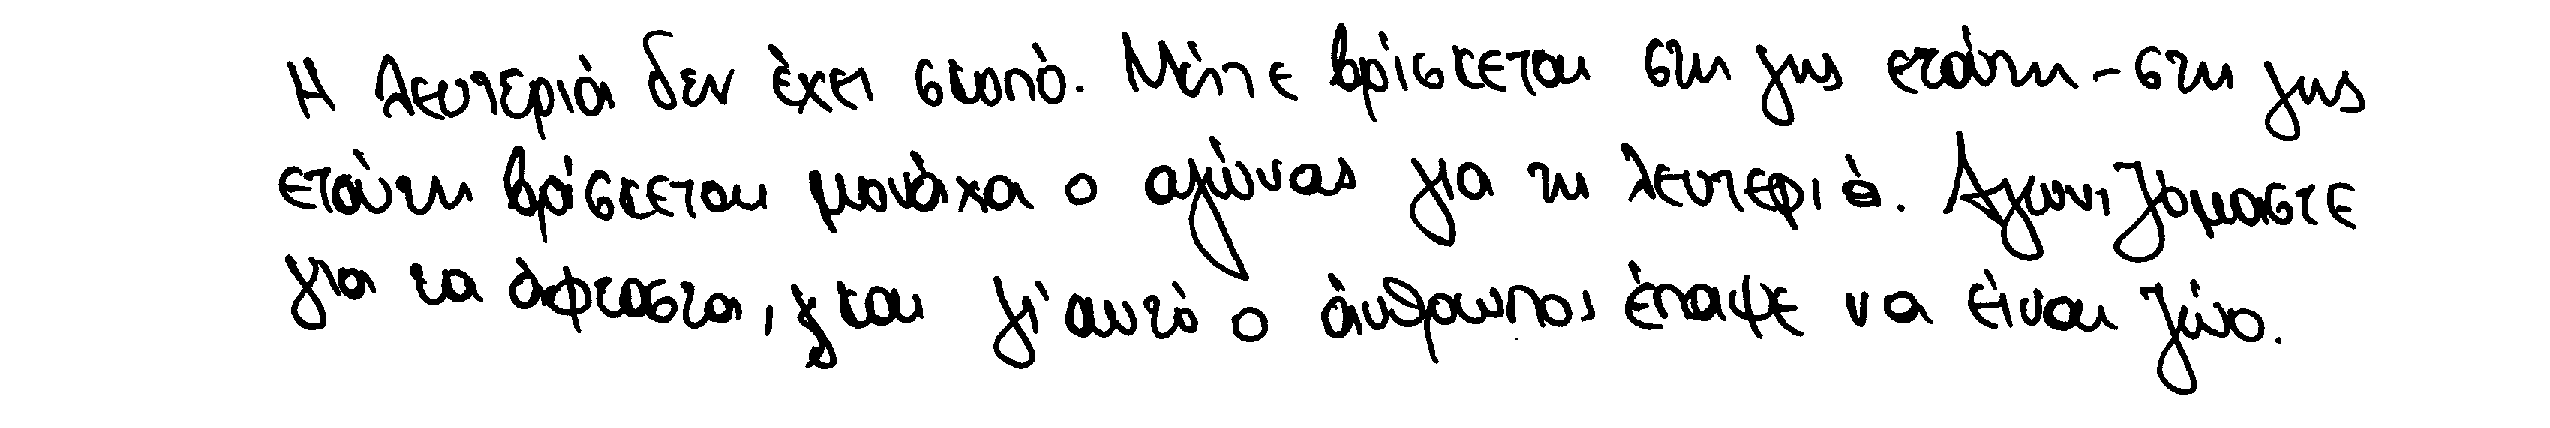 Η λευτεριά δεν έχει σκοπό. Μήτε βρίσκεται στη γης ετούτη - στη γης
ετούτη βρίσκεται μονάχα ο αγώνας για τη λευτεριά. Αγωνιζόμαστε
για τα άφταστα, και γι' αυτό ο άνθρωπος έπαψε να είναι ζώο.